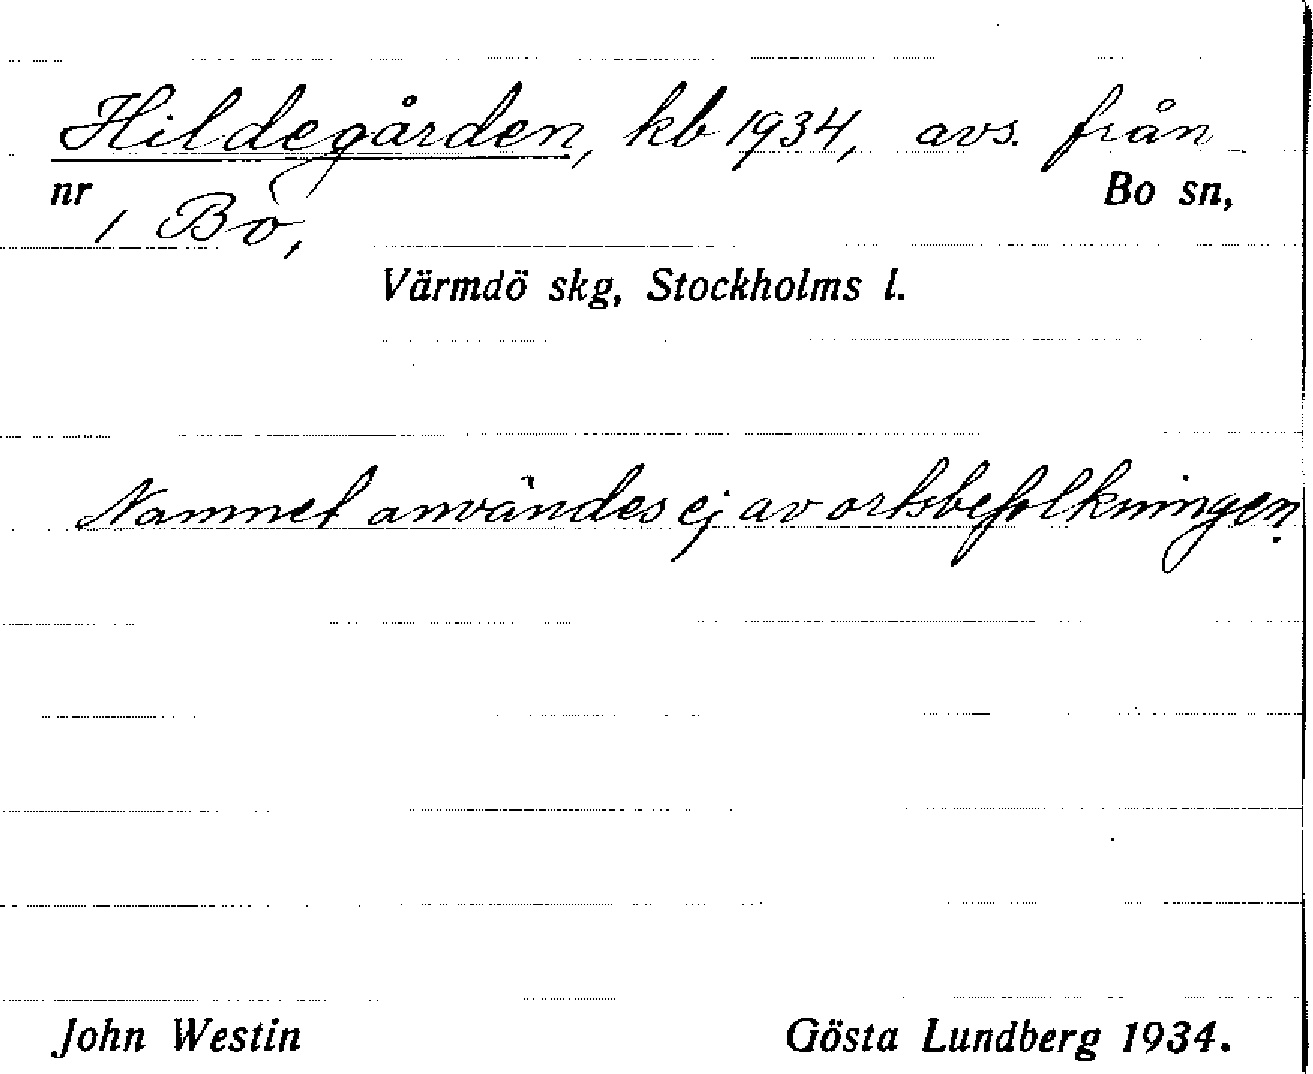 Hildegården, kb 1934, avs. från
nr 1 Bo, Bo sn,
Värmdö skg, Stockholms l.
Namnet användes ej av ortsbefolkningen.
John Westin Gösta Lundberg 1934.